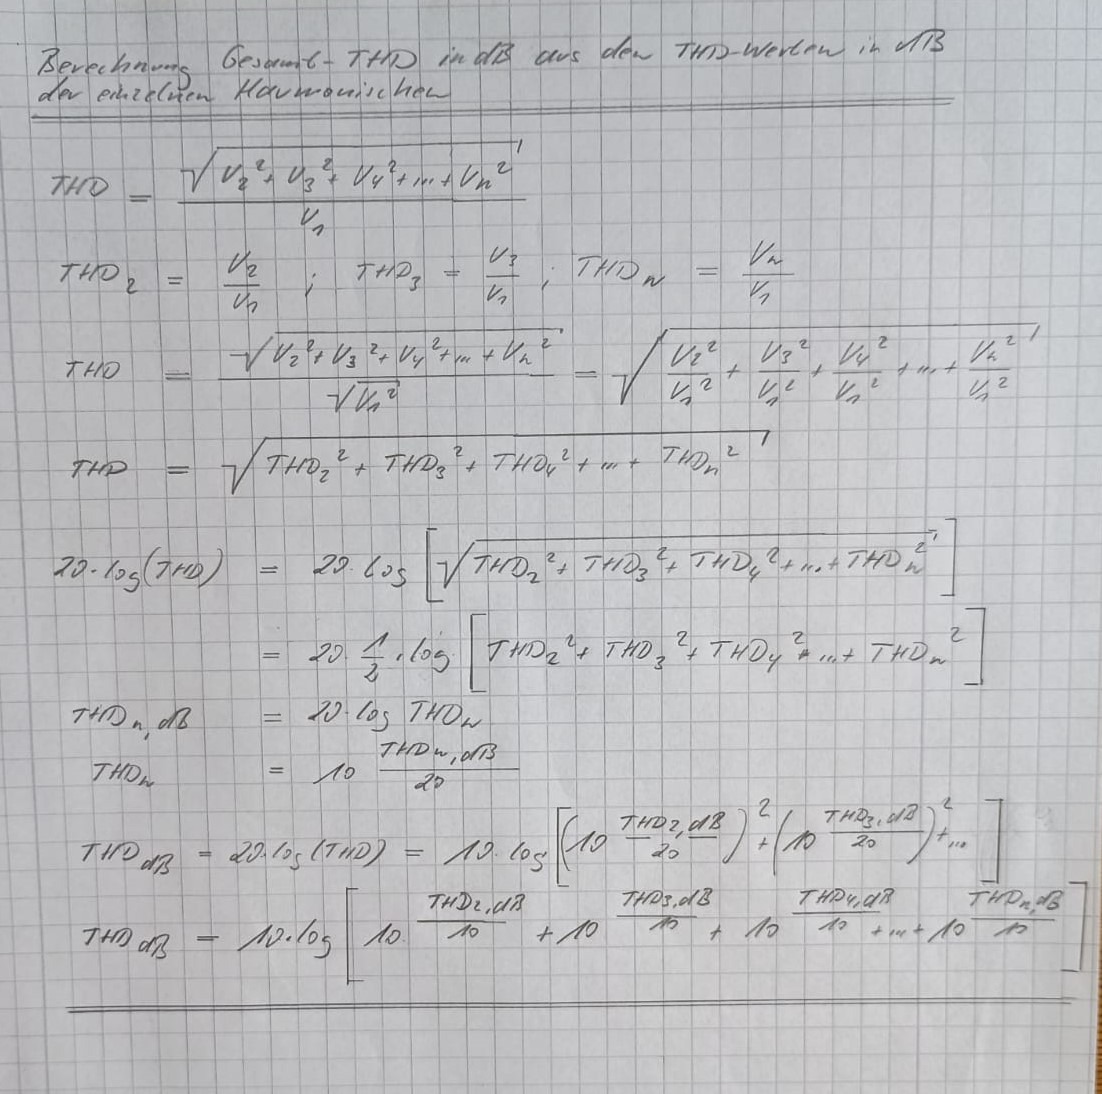 Berechnung Gesamt-THD in dB aus den THD-Werten in dB
der einzelnen Harmonischen
THD = √(V₂² + V₃² + V₄² + ... + Vₙ²) / V₁
THD₂ = V₂/V₁ ; THD₃ = V₃/V₁ ; THDₙ = Vₙ/V₁
THD = √(V₂² + V₃² + V₄² + ... + Vₙ²) / √(V₁²) = √(V₂²/V₁² + V₃²/V₁² + V₄²/V₁² + ... + Vₙ²/V₁²)
THD = √(THD₂² + THD₃² + THD₄² + ... + THDₙ²)
20·log(THD) = 20·log [√(THD₂² + THD₃² + THD₄² + ... + THDₙ²)]
= 20·1/2·log [THD₂² + THD₃² + THD₄² + ... + THDₙ²]
THDn,dB = 20·log THDₙ
THDₙ = 10^(THDn,dB/20)
THD dB = 20·log(THD) = 10·log [(10^(THD2,dB/20))² + (10^(THD3,dB/20))² + ...]
THD dB = 10·log [10^(THD2,dB/10) + 10^(THD3,dB/10) + 10^(THD4,dB/10) + ... + 10^(THDn,dB/10)]